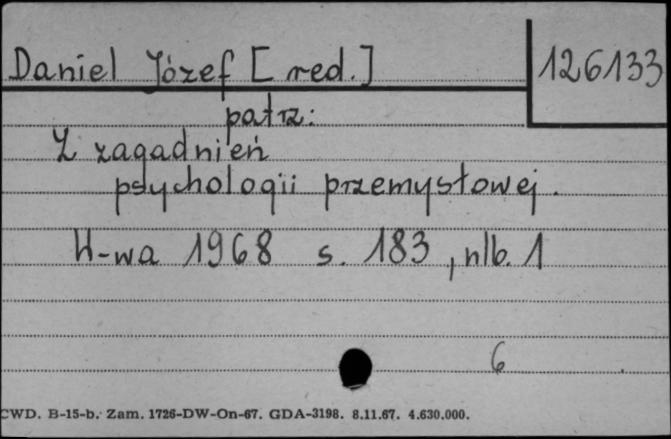 Daniel Józef [red.]
126133
patrz:
Z zagadnień
psychologii przemysłowej.
W-wa 1968 s. 183, nlb. 1
6
CWD. B-15-b. Zam. 1726-DW-On-67. GDA-3198. 8.11.67. 4.630.000.